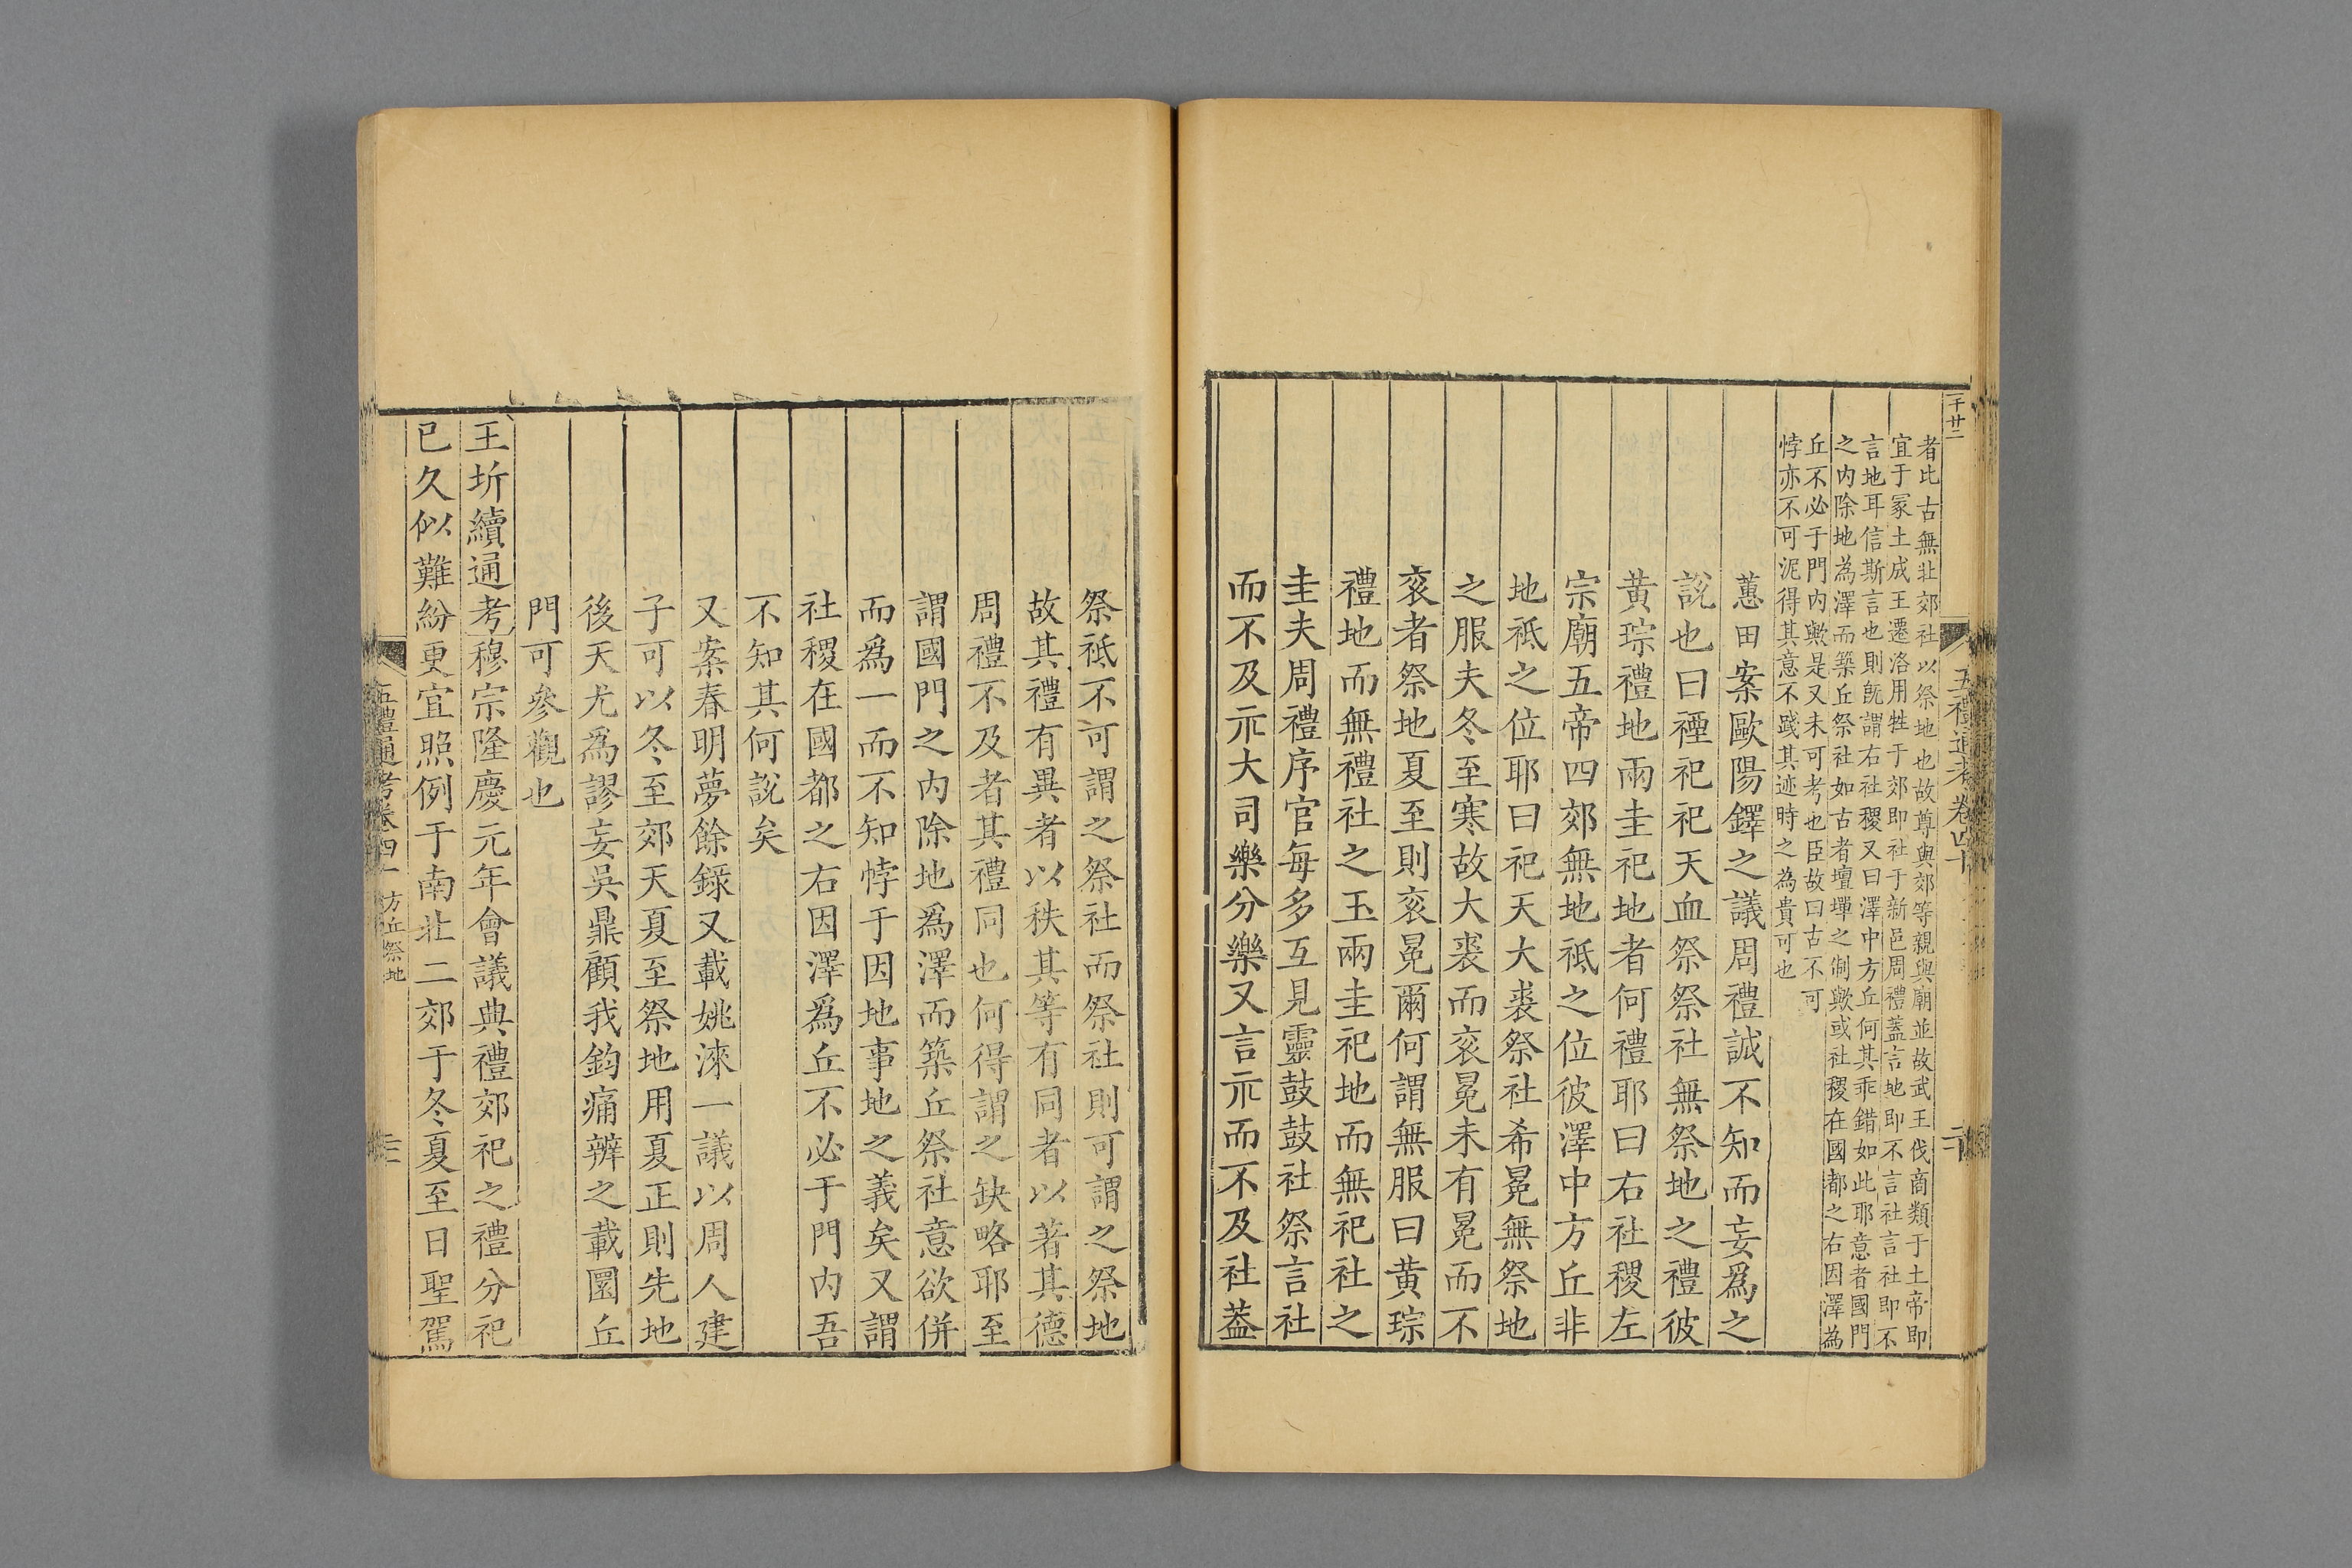 千廿二
五禮通考 卷四十
者比古無北郊社以祭地也故尊與郊等親與廟並故武王伐商類于土帝即
宜于冢土成王遷洛用牲于郊即社于新邑周禮蓋言地即不言社言社即不
言地耳信斯言也則旣謂右社稷又曰澤中方丘何其乖錯如此耶意者國門
之内除地為澤而築丘祭社如古者壇墠之制歟或社稷在國都之右因澤為
丘不必于門内歟是又未可考也臣故曰古不可
悖亦不可泥得其意不踐其迹時之為貴可也
蕙田案歐陽鐸之議周禮誠不知而妄爲之
說也曰禋祀祀天血祭祭社無祭地之禮彼
黄琮禮地兩圭祀地者何禮耶曰右社稷左
宗廟五帝四郊無地祗之位彼澤中方丘非
地祗之位耶曰祀天大裘祭社希冕無祭地
之服夫冬至寒故大裘而衮冕未有冕而不
衮者祭地夏至則衮冕爾何謂無服曰黄琮
禮地而無禮社之玉兩圭祀地而無祀社之
圭夫周禮序官每多互見靈鼓鼓社祭言社
而不及示大司樂分樂又言示而不及社葢
祭祗不可謂之祭社而祭社則可謂之祭地
故其禮有異者以秩其等有同者以著其德
周禮不及者其禮同也何得謂之缺略耶至
謂國門之内除地爲澤而築丘祭社意欲併
而爲一而不知悖于因地事地之義矣又謂
社稷在國都之右因澤爲丘不必于門内吾
不知其何說矣
又案春明夢餘錄又載姚淶一議以周人建
子可以冬至郊天夏至祭地用夏正則先地
後天尤爲謬妄吳鼎顧我鈞痛辨之載圜丘
門可參觀也
王圻續通考穆宗隆慶元年會議典禮郊祀之禮分祀
已久似難紛更宜照例于南北二郊于冬夏至日聖駕
五禮通考卷四十 方丘祭地